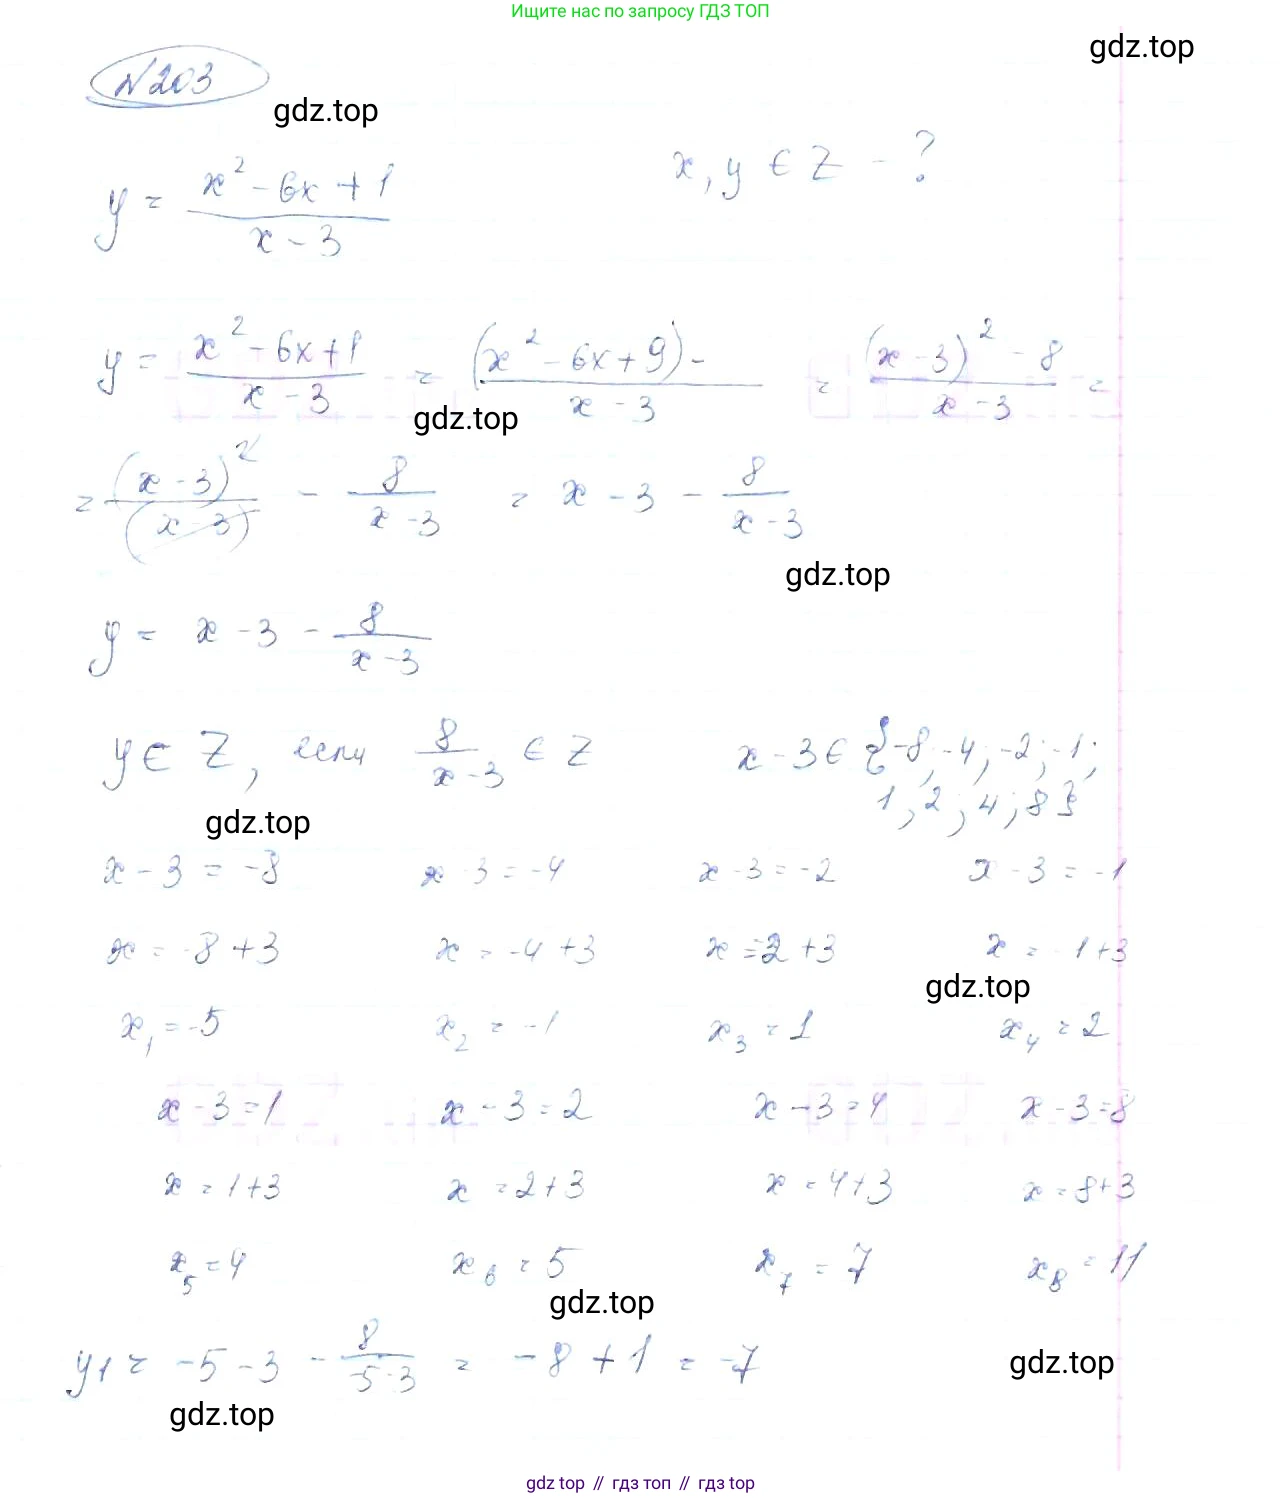 Ищите нас по запросу ГДЗ ТОП
gdz.top
№203
gdz.top
x, y ∈ Z - ?
y = (x² - 6x + 1)/(x - 3)
y = (x² - 6x + 1)/(x - 3) = ((x² - 6x + 9) -)/(x - 3) = ((x - 3)² - 8)/(x - 3) =
gdz.top
= (x - 3)²/(x - 3) - 8/(x - 3) = x - 3 - 8/(x - 3)
gdz.top
y = x - 3 - 8/(x - 3)
y ∈ Z, если 8/(x - 3) ∈ Z x - 3 ∈ {-8; -4; -2; -1;
1; 2; 4; 8}
gdz.top
x - 3 = -8 x - 3 = -4 x - 3 = -2 x - 3 = -1
x = -8 + 3 x = -4 + 3 x = -2 + 3 x = -1 + 3
gdz.top
x₁ = -5 x₂ = -1 x₃ = 1 x₄ = 2
x - 3 = 1 x - 3 = 2 x - 3 = 4 x - 3 = 8
x = 1 + 3 x = 2 + 3 x = 4 + 3 x = 8 + 3
x₅ = 4 x₆ = 5 x₇ = 7 x₈ = 11
gdz.top
y₁ = -5 - 3 - 8/(-5 - 3) = -8 + 1 = -7
gdz.top
gdz.top
gdz top // гдз топ // gdz top